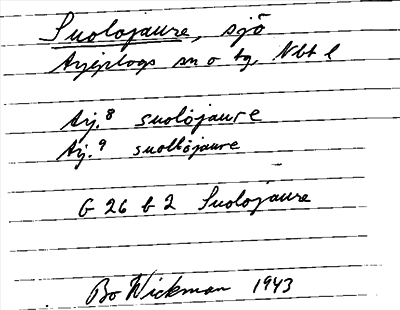 Suolojaure, sjö
Arjeplogs sn o tg, Nbt l
Arj.⁸ suolojaure
Arj.⁹ suollojaure
G 26 b 2 Suolojaure
Bo Wickman 1943